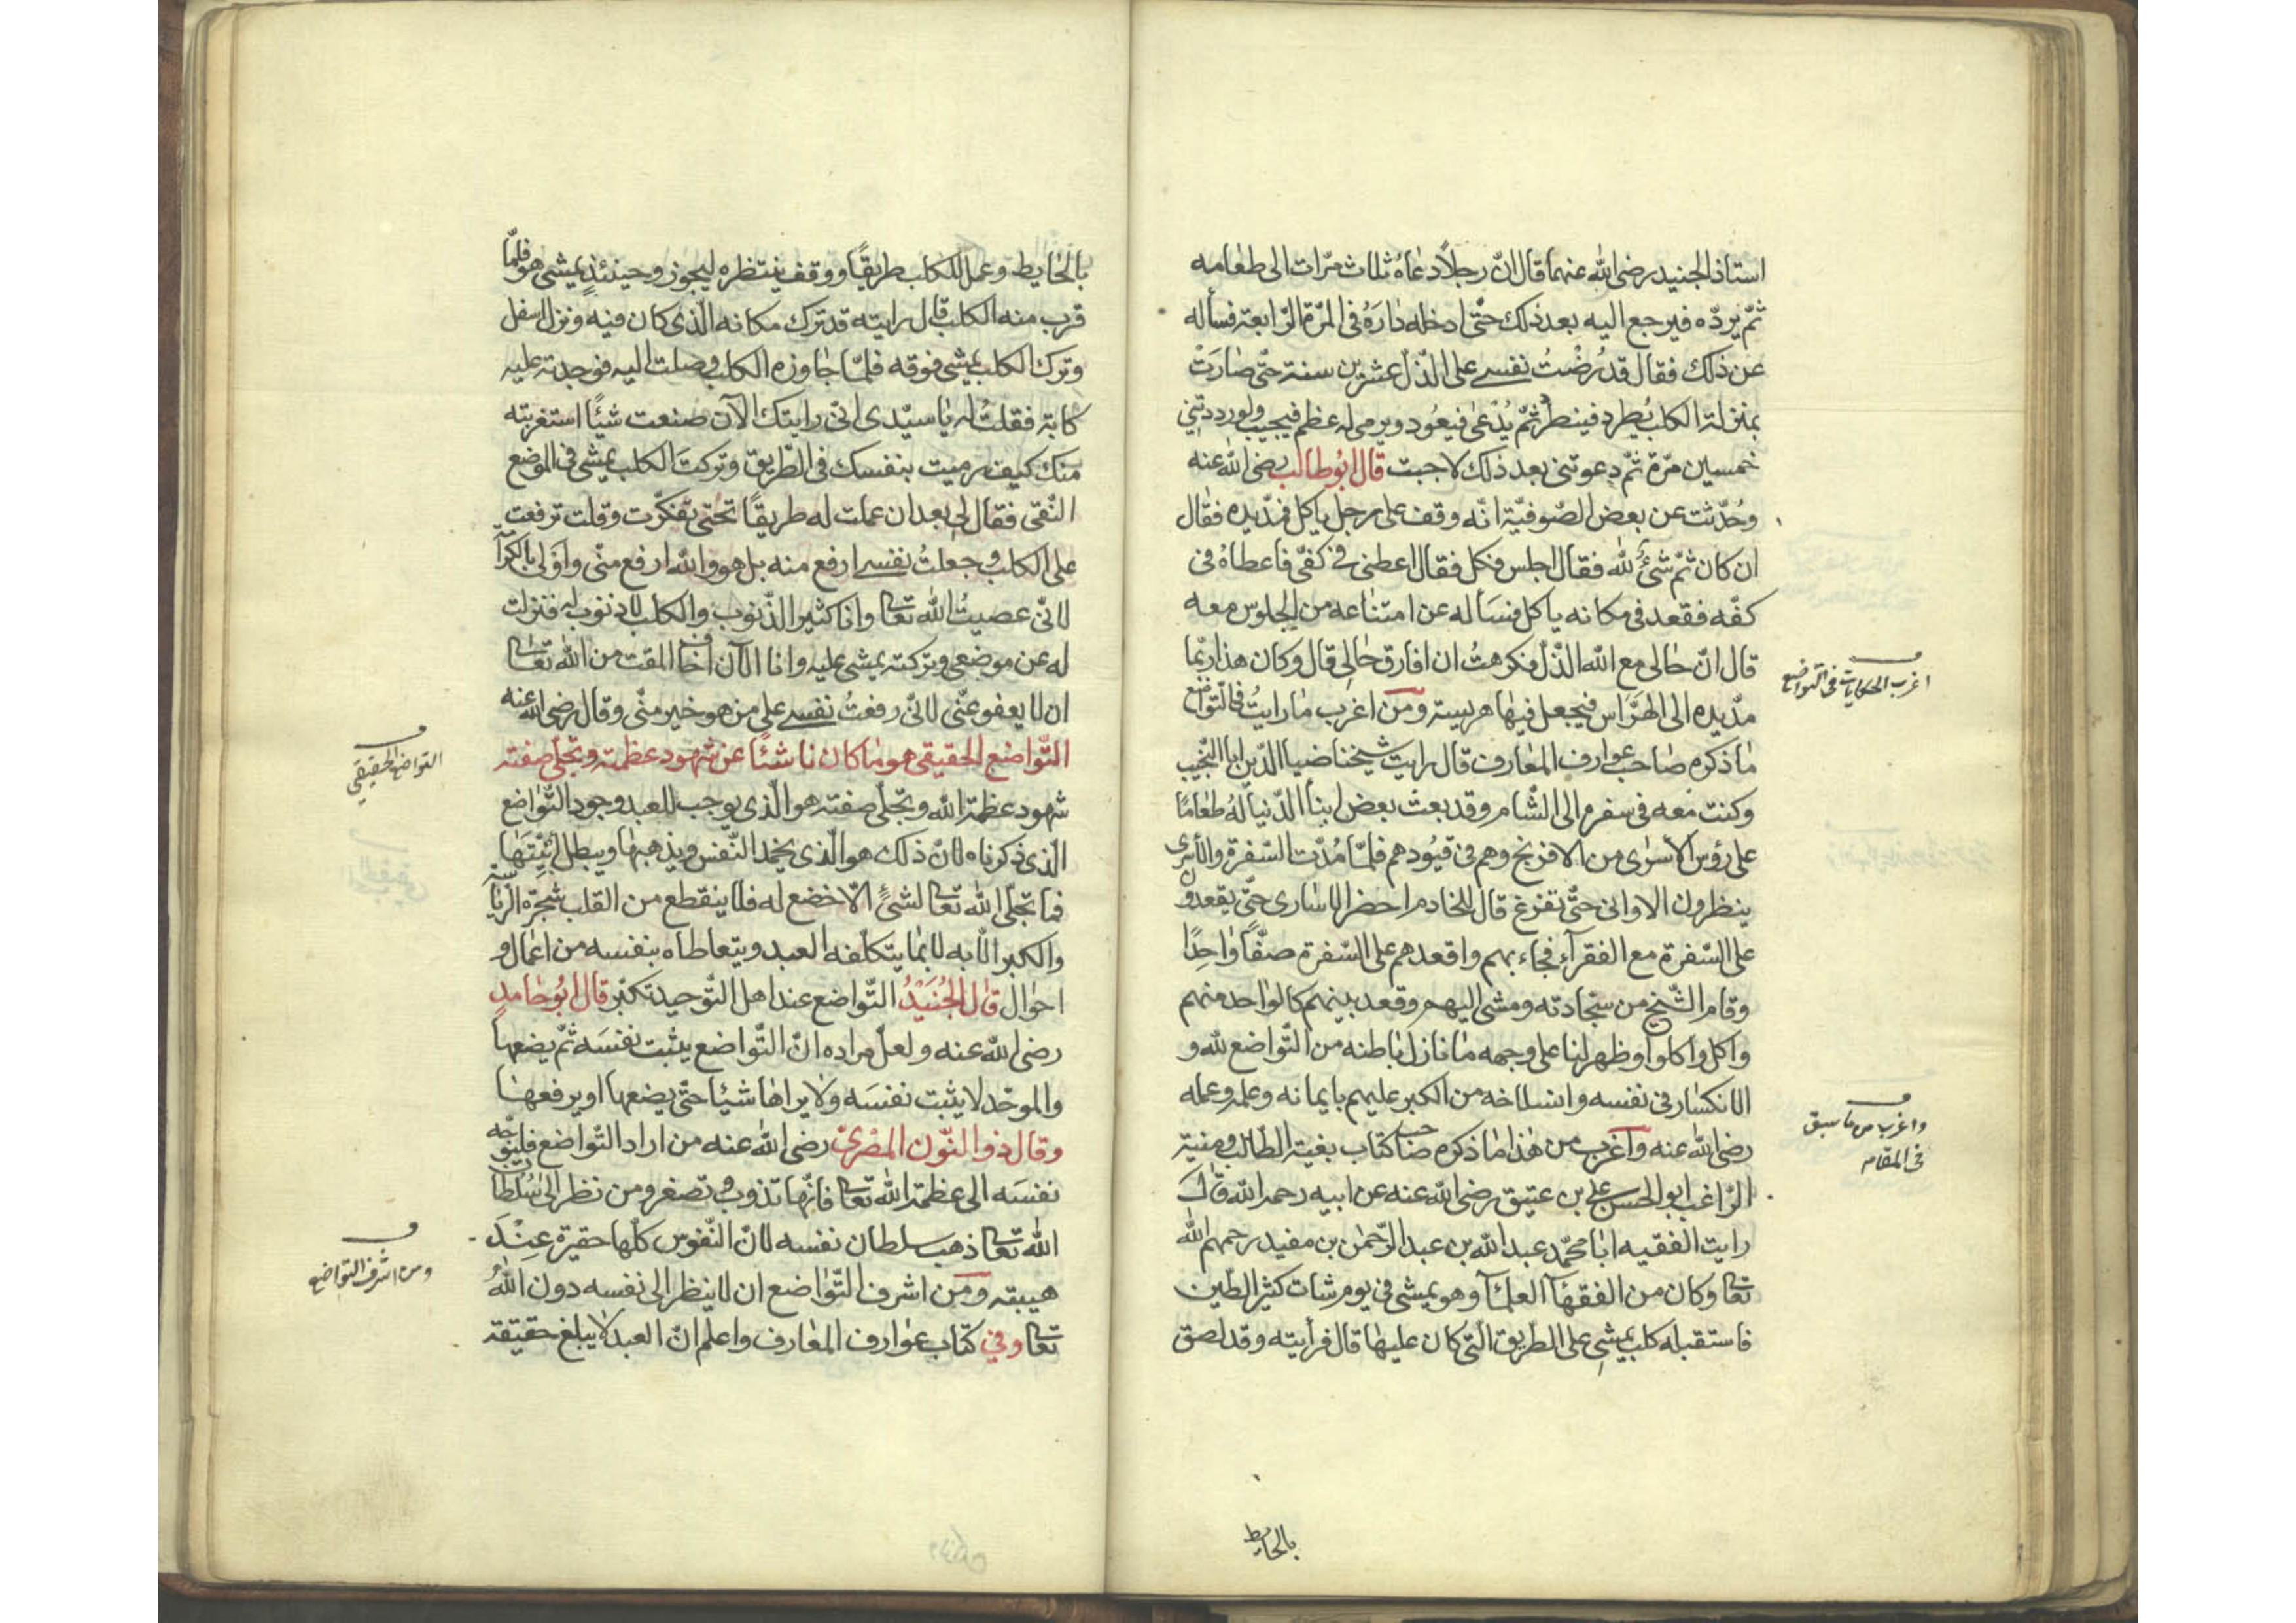 استاذ الجنيد رضى الله عنهما قال انّ رجلاً دعاهُ ثلاث مرّات الى طعامه
ثمّ يردّه فيرجع اليه بعد ذلك حتّى ادخله دارَهُ فى المرّة الرّابعة فسأله
عن ذلك فقال قد رُضْتُ نفسى على الذّلّ عشرين سنة حتّى صارَتْ
بمنزلة الكلب يُطرد فينطرد ثمّ يُدْعى فيعُود ويرمى له عظم فيجيب ولو رددتنى
خمسين مرّة ثمّ دعوتنى بعد ذلك لاجبت قال ابُو طالب رضى الله عنه
وحُدّثت عن بعض الصّوفيّة انّه وقف على رجل ياكل فمدّ يده فقال
ان كان ثمّ شئٌ للّه فقال اجلس فكل فقال اعطنى فى كفّى فاعطاهُ فى
كفّه فقعد فى مكانه ياكل فسَأله عن امتناعه من الجلوس معه
قال انّ حالى مع الله الذّلّ فكرهتُ ان افارق حالى قال وكان هذا ربّما
مدّ يده الى الهرّاس فيجعل فيها هريسة ومن اغرب ما رايتُ فى التّواضع
اغرب الحكايات فى التواضع
ما ذكره صاحب عوارف المعارف قال رايت شيخنا ضيا الدّين ابا النّجيب
وكنت معه فى سفره الى الشّام وقد بعث بعض ابناۤ الدّنياۤ لهُ طعامًا
على رؤس الأسرى من الافرنج وهم فى قيُودهم فلمّا مُدّت السّفرة والأسرى
ينظرون الاوانى حتّى تفرغ قال للخادم احضر الاسارى حتّى يقعدوا
على السّفرة مع الفقراۤء فجاء بهم واقعدهم على السّفرة صفًّا واحِدًا
وقام الشّيخ من سجّادته ومشى اليهم وقعد بينهم كالواحد منهم
واكل واكلوا وظهر لنا على وجهه ما نازل باطنه من التّواضع للّه و
الانكسار فى نفسه وانسلاخه من الكبر عليهم بايمانه وعلمه وعمله
رضى الله عنه واغرب من هذا ما ذكره صاحب كتاب بغية الطالب ومنية
واغرب من ما سبق
فى المقام
الرّاغب ابو الحسن على بن عتيق رضى الله عنه عن ابيه رحمه الله قال
رايت الفقيه ابا محمّد عبد الله بن عبد الرّحمن بن مفيد رحمهم الله
تعا وكان من الفقهاۤ العلماۤ وهو يمشى فى يوم شات كثير الطّين
فاستقبله كلب يمشى على الطّريق الّتى كان عليها قال فرأيته وقد لصق
بالحايط
بالحايط وعمل للكلب طريقًا ووقف ينتظره ليجوز وحينئذٍ يمشى هو فلمّا
قرب منه الكلب قال رايته قد ترك مكانه الّذى كان فيه ونزل اسفل
وترك الكلب يمشى فوقه فلمّا جاوزه الكلب وصلت اليه فوجدته عليه
كابة فقلتُ له ياسيّدى انّى رايتك الآن صنعت شئًا استغربته
منك كيف رميت بنفسك فى الطّريق وتركتَ الكلب يمشى فى الموضع
النّقى فقال لى بعد ان عملت له طريقًا تحتى تفكّرت وقلت ترفعت
على الكلب وجعلتُ نفسى ارفع منه بل هو والله ارفع منّى واوَلى بالكرآ
لانّى عصيتُ الله تعا وانا كثير الذّنوب والكلب لا ذنوب له فنزلت
له عن موضعى وتركته يمشى عليه وانا الآن اخاف المقت من الله تعا
ان لا يعفو عنّى لانّى رفعتُ نفسى على من هو خير منّى وقال رضى الله عنه
التّواضع الحقيقى هو ما كان ناشئًا عن شهود عظمته وتجلّى صفته
التواضع الحقيقي
شهود عظمة الله وتجلّى صفته هو الّذى يوجب للعبد وجود التّواضع
الّذى ذكرناه لانّ ذلك هو الّذى يخمد النّفس ويذهبها ويبطل
فما تجلّى الله تعا لشئٍ الّا خضع له فلا ينقطع من القلب شجرة الرّياسة
والكبر الّا به لا بما يتكلّفه العبد ويتعاطاه بنفسه من اعمال و
احوال قال الجُنَيْدُ التّواضع عند اهل التّوحيد تكبّر قال ابُو حامدٍ
رضى الله عنه ولعلّ مراده انّ التّواضع يثبت نفسَه ثمّ يضعها
والموحّد لا يثبت نفسَه ولا يراها شيئا حتّى يضعها او يرفعها
وقال ذو النّون المصْرىّ رضى الله عنه من اراد التّواضع فليوجّه
نفسَه الى عظمة الله تعا فانّها تذوب وتصغر ومن نظر الى سُلطان
الله تعا ذهب سلطان نفسه لانّ النّفوس كلّها حقيرة عِنْدَ
هيبته ومن اشرف التّواضع ان لا ينظر الى نفسه دون اللهُ
ومن اشرف التواضع
تعا وفي كتاب عوارف المعارف واعلم انّ العبد لا يبلغ حقيقة